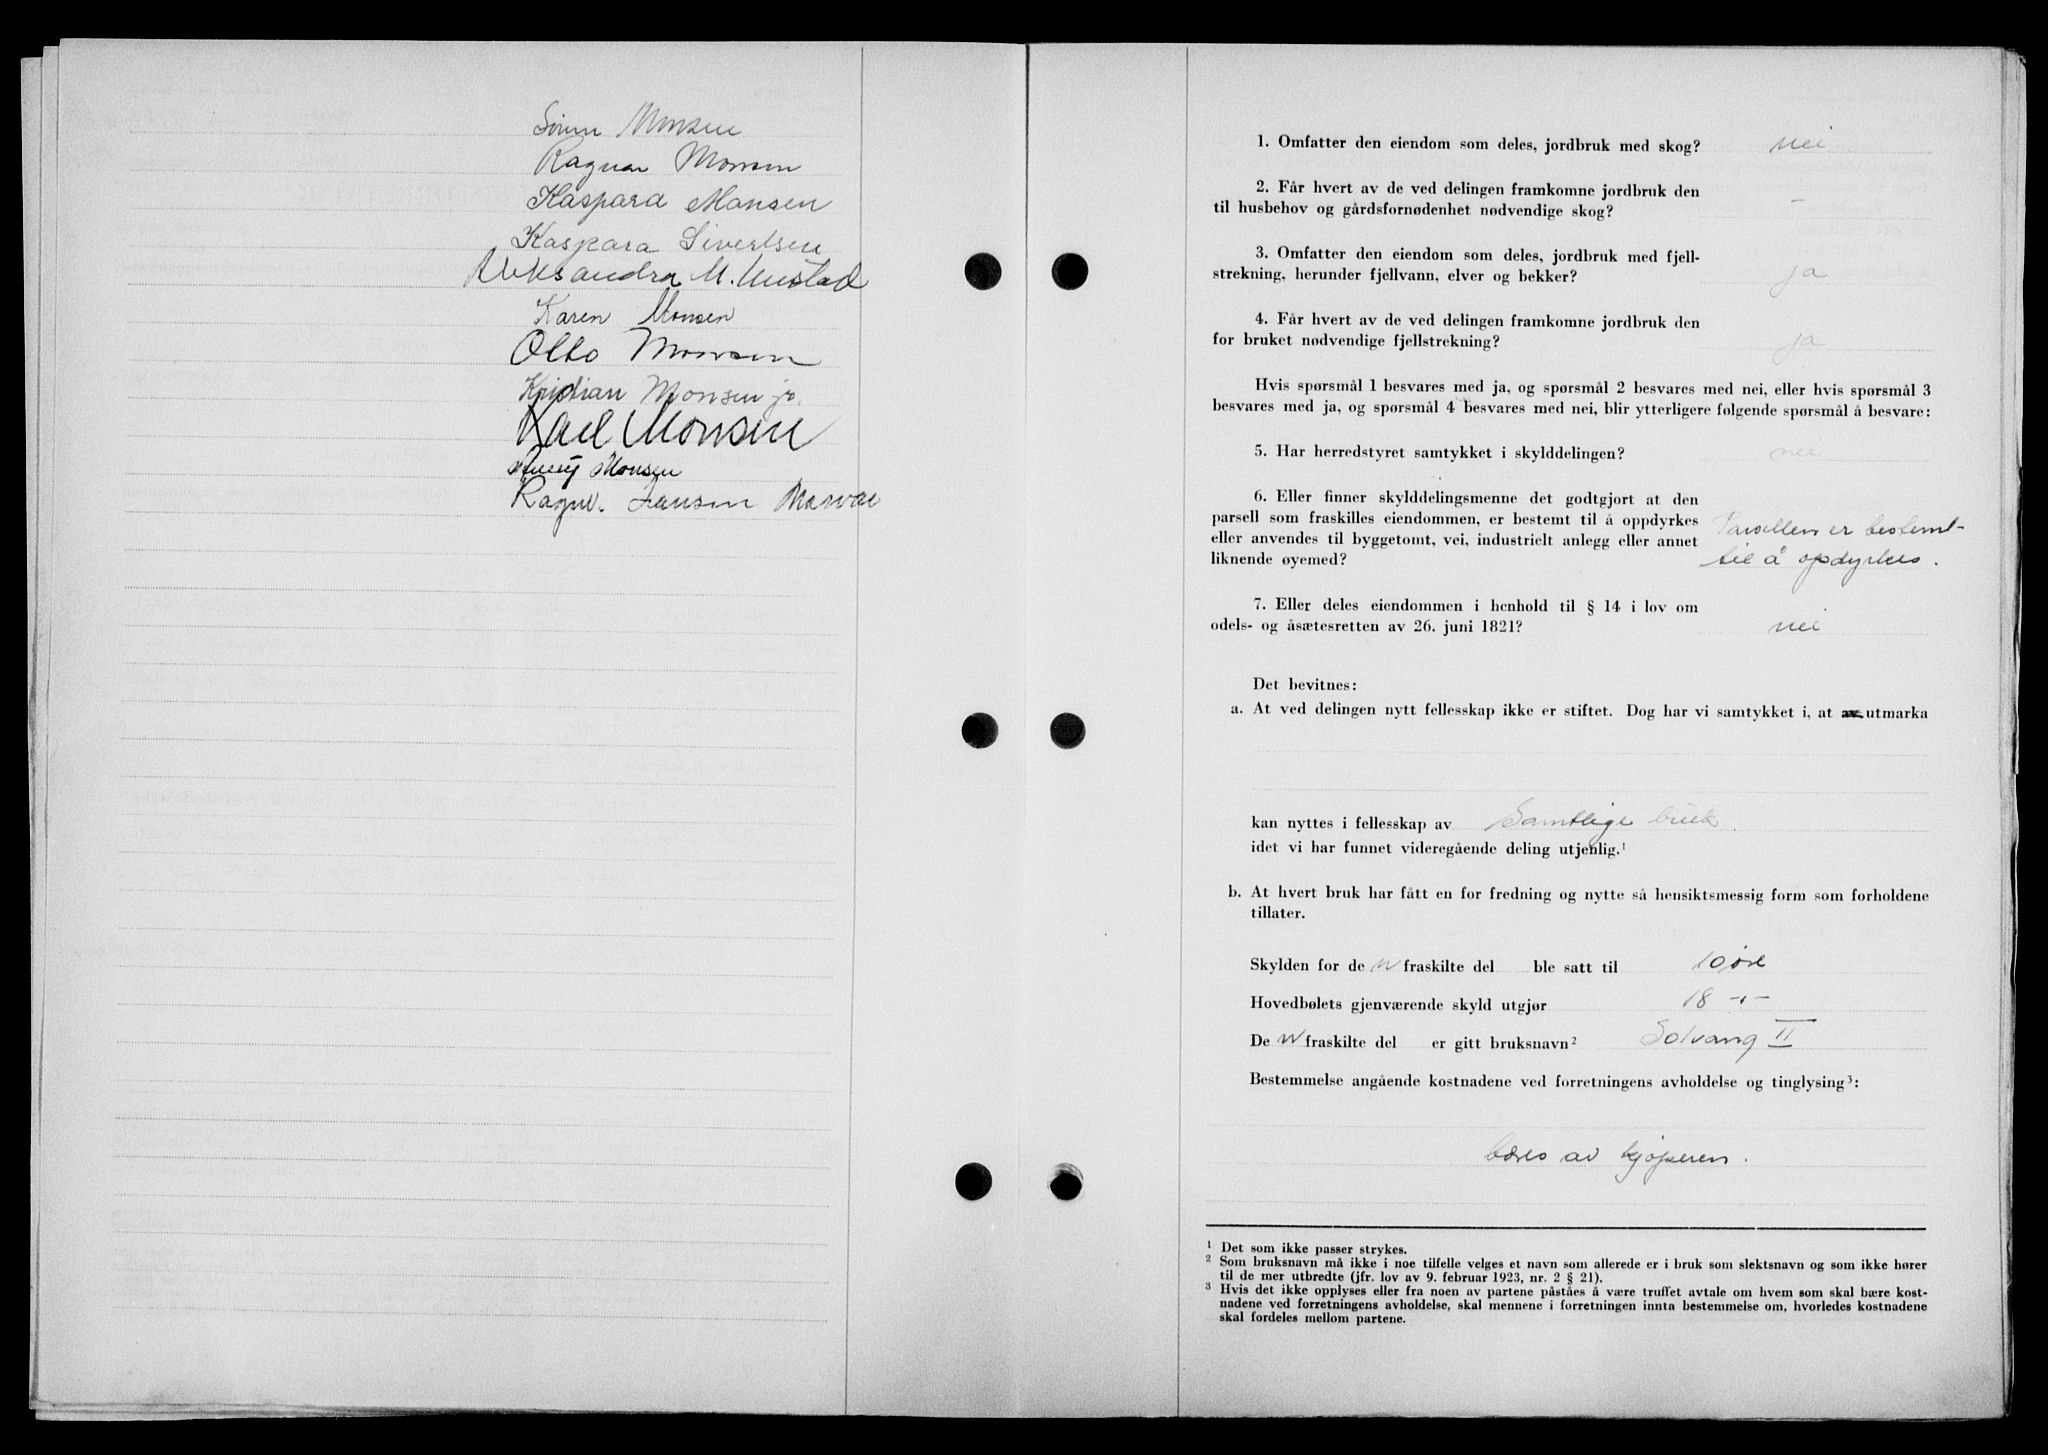 Søren Monsen
Ragnar Monsen
Kaspara Monsen
Kaspara Sivertsen
Aleksandra M. Mustad
Karen Monsen
Otto Monsen
Kristian Monsen jr.
Karl Monsen
Monsen
Ragnv. Jansen
1. Omfatter den eiendom som deles, jordbruk med skog? nei
2. Får hvert av de ved delingen framkomne jordbruk den
til husbehov og gårdsfornødenhet nødvendige skog? -
3. Omfatter den eiendom som deles, jordbruk med fjell-
strekning, herunder fjellvann, elver og bekker? ja
4. Får hvert av de ved delingen framkomne jordbruk den
for bruket nødvendige fjellstrekning? ja
Hvis spørsmål 1 besvares med ja, og spørsmål 2 besvares med nei, eller hvis spørsmål 3
besvares med ja, og spørsmål 4 besvares med nei, blir ytterligere følgende spørsmål å besvare:
5. Har herredstyret samtykket i skylddelingen? nei
6. Eller finner skylddelingsmenne det godtgjort at den
parsell som fraskilles eiendommen, er bestemt til å oppdyrkes
eller anvendes til byggetomt, vei, industrielt anlegg eller annet
liknende øyemed?
Parsellen er bestemt
til å opdyrkes.
7. Eller deles eiendommen i henhold til § 14 i lov om
odels- og åsætesretten av 26. juni 1821? nei
Det bevitnes:
a. At ved delingen nytt fellesskap ikke er stiftet. Dog har vi samtykket i, at av utmarka
kan nyttes i fellesskap av Samtlige bruk.
idet vi har funnet videregående deling utjenlig.¹
b. At hvert bruk har fått en for fredning og nytte så hensiktsmessig form som forholdene
tillater.
Skylden for de n fraskilte del ble satt til 10 øre
Hovedbølets gjenværende skyld utgjør 18 -"-
De n fraskilte del er gitt bruksnavn² Solvang II
Bestemmelse angående kostnadene ved forretningens avholdelse og tinglysing³:
bæres av kjøperen.
¹ Det som ikke passer strykes.
² Som bruksnavn må ikke i noe tilfelle velges et navn som allerede er i bruk som slektsnavn og som ikke hører
til de mer utbredte (jfr. lov av 9. februar 1923, nr. 2 § 21).
³ Hvis det ikke opplyses eller fra noen av partene påståes å være truffet avtale om hvem som skal bære kost-
nadene ved forretningens avholdelse, skal mennene i forretningen innta bestemmelse om, hvorledes kostnadene
skal fordeles mellom partene.